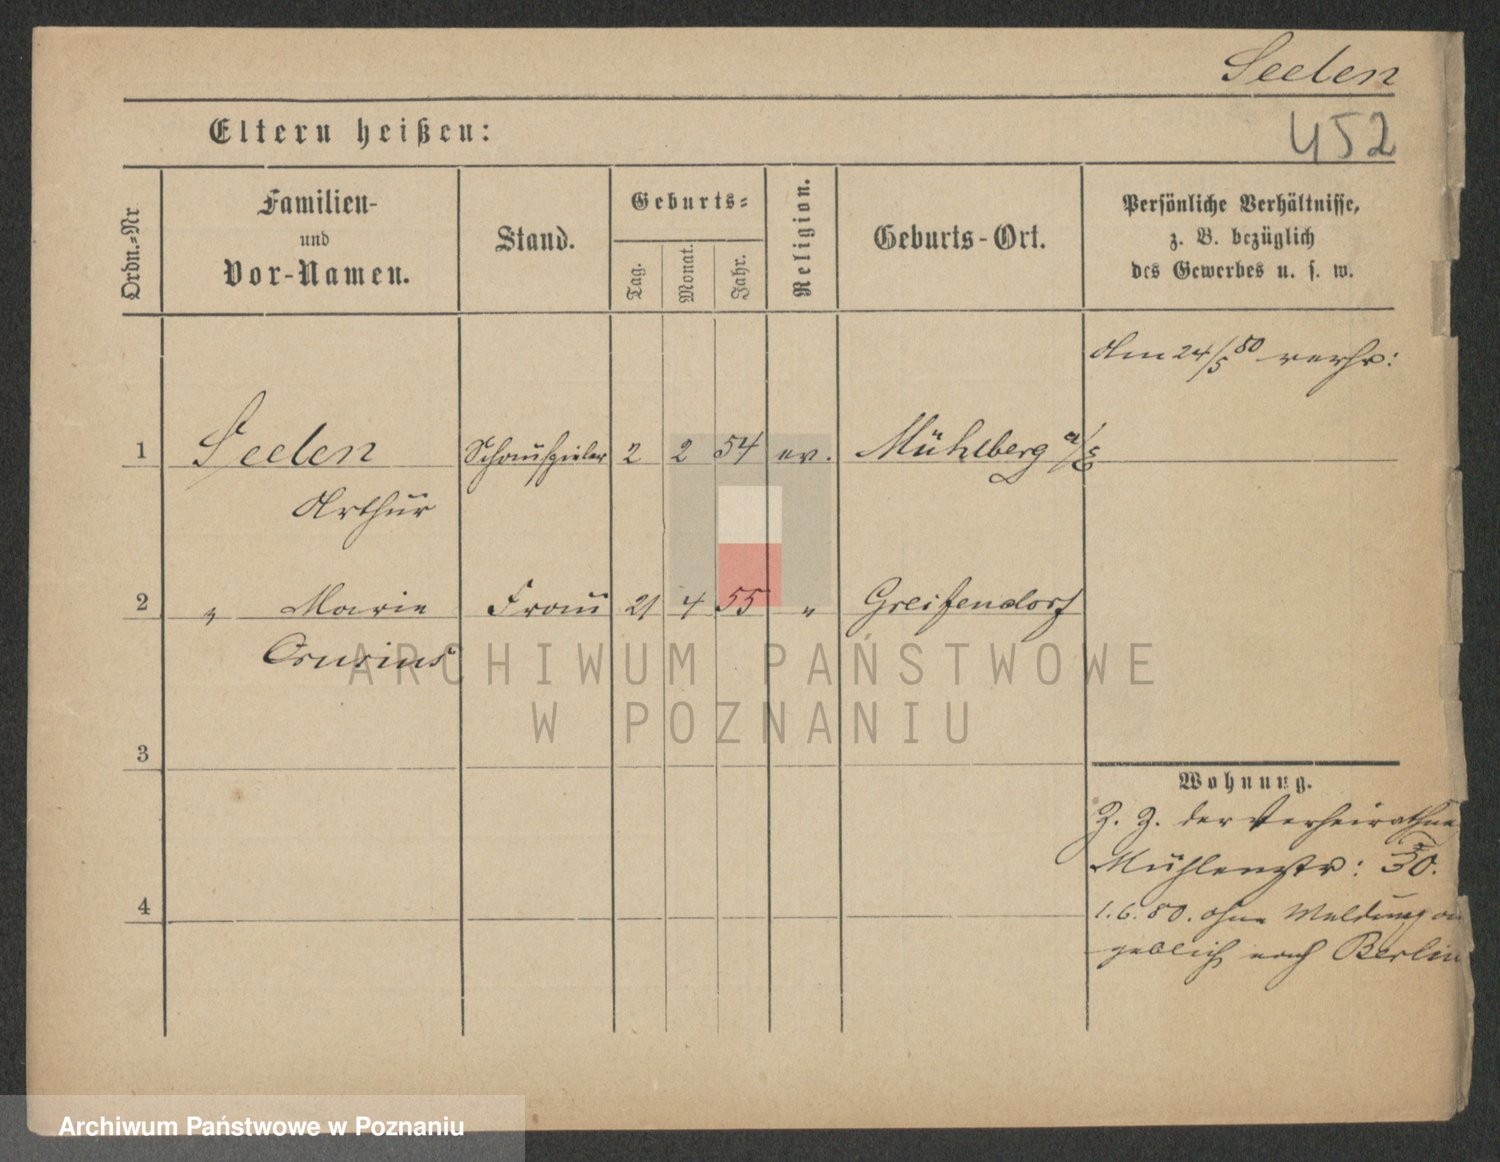 Seelen
452
Eltern heißen:
Ordn.=Nr
Familien-
und
Vor-Namen.
Stand.
Geburts=
Tag.
Monat.
Jahr.
Religion.
Geburts-Ort.
Persönliche Verhältnisse,
z. B. bezüglich
des Gewerbes u. s. w.
Am 24/5 80 verhr:
1 Seelen Schauspieler 2 2 54 ev. Mühlberg a/E
Arthur
2 " Marie Frau 21 4 55 " Greifendorf
Crusius
ARCHIWUM PAŃSTWOWE
W POZNANIU
3
Wohnung.
Z. Z. der Verheirathung
Mühlenstr: 30.
4
1.6.80. ohne Meldung an
geblich nach Berlin
Archiwum Państwowe w Poznaniu